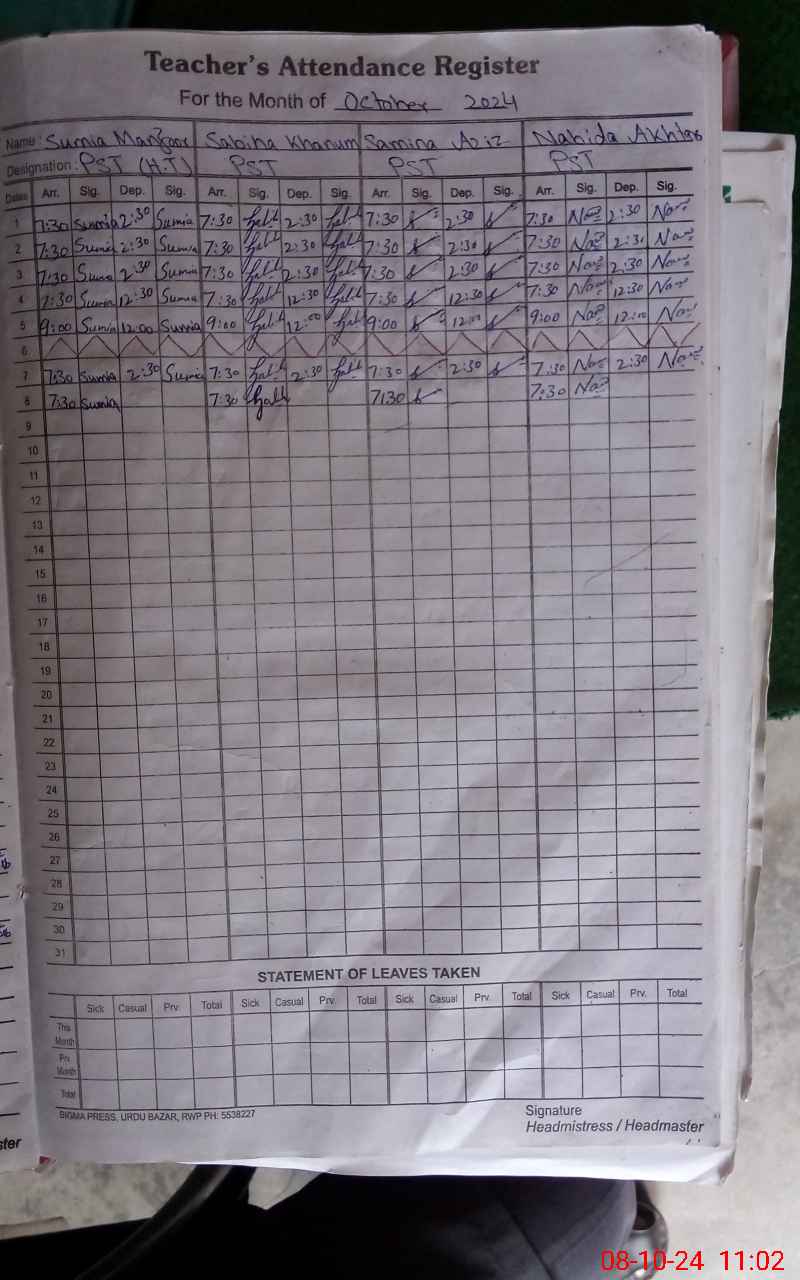 Teacher's Attendance Register
For the Month of October 2024
Name: Sumia Manzoor Sabiha Khanum Samina Aziz Nahida Akhter
Designation: PST (H.T) PST PST PST
Dates Arr. Sig. Dep. Sig. Arr. Sig. Dep. Sig. Arr. Sig. Dep. Sig. Arr. Sig. Dep. Sig.
1 7:30 Sumia 2:30 Sumia 7:30 2:30 7:30 2:30 7:30 2:30
2 7:30 Sumia 2:30 Sumia 7:30 2:30 7:30 2:30 7:30 2:30
3 7:30 Sumia 2:30 Sumia 7:30 2:30 7:30 2:30 7:30 2:30
4 7:30 Sumia 12:30 Sumia 7:30 12:30 7:30 12:30 7:30 12:30
5 9:00 Sumia 12:00 Sumia 9:00 12:00 9:00 12:00 9:00 12:00
6
7 7:30 Sumia 2:30 Sumia 7:30 2:30 7:30 2:30 7:30 2:30
8 7:30 Sumia 7:30 7:30 7:30
9
10
11
12
13
14
15
16
17
18
19
20
21
22
23
24
25
26
27
28
29
30
31
STATEMENT OF LEAVES TAKEN
Sick Casual Prv. Total Sick Casual Prv. Total Sick Casual Prv. Total Sick Casual Prv. Total
This Month
Prv Month
Total
SIGMA PRESS, URDU BAZAR, RWP PH: 5538227
Signature
Headmistress / Headmaster
08-10-24 11:02